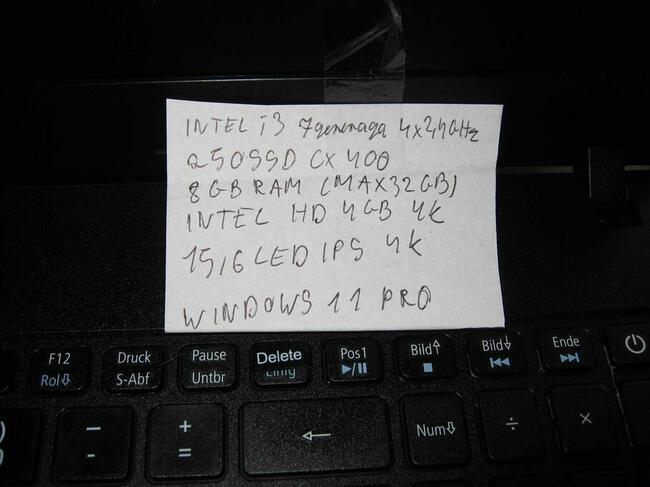 INTEL i3 7generacja 4x2,4GHz
250SSD CX 400
8 GB RAM (MAX32GB)
INTEL HD 4GB 4K
15,6 LED IPS 4K
WINDOWS 11 PRO
F12 Druck Pause Delete Pos1 Bild↑ Bild↓ Ende
Rol⇩ S-Abf Untbr Einfg ▶/II ■ |◀◀ ▶▶|
− + ← Num⇩ ÷ ×
- =